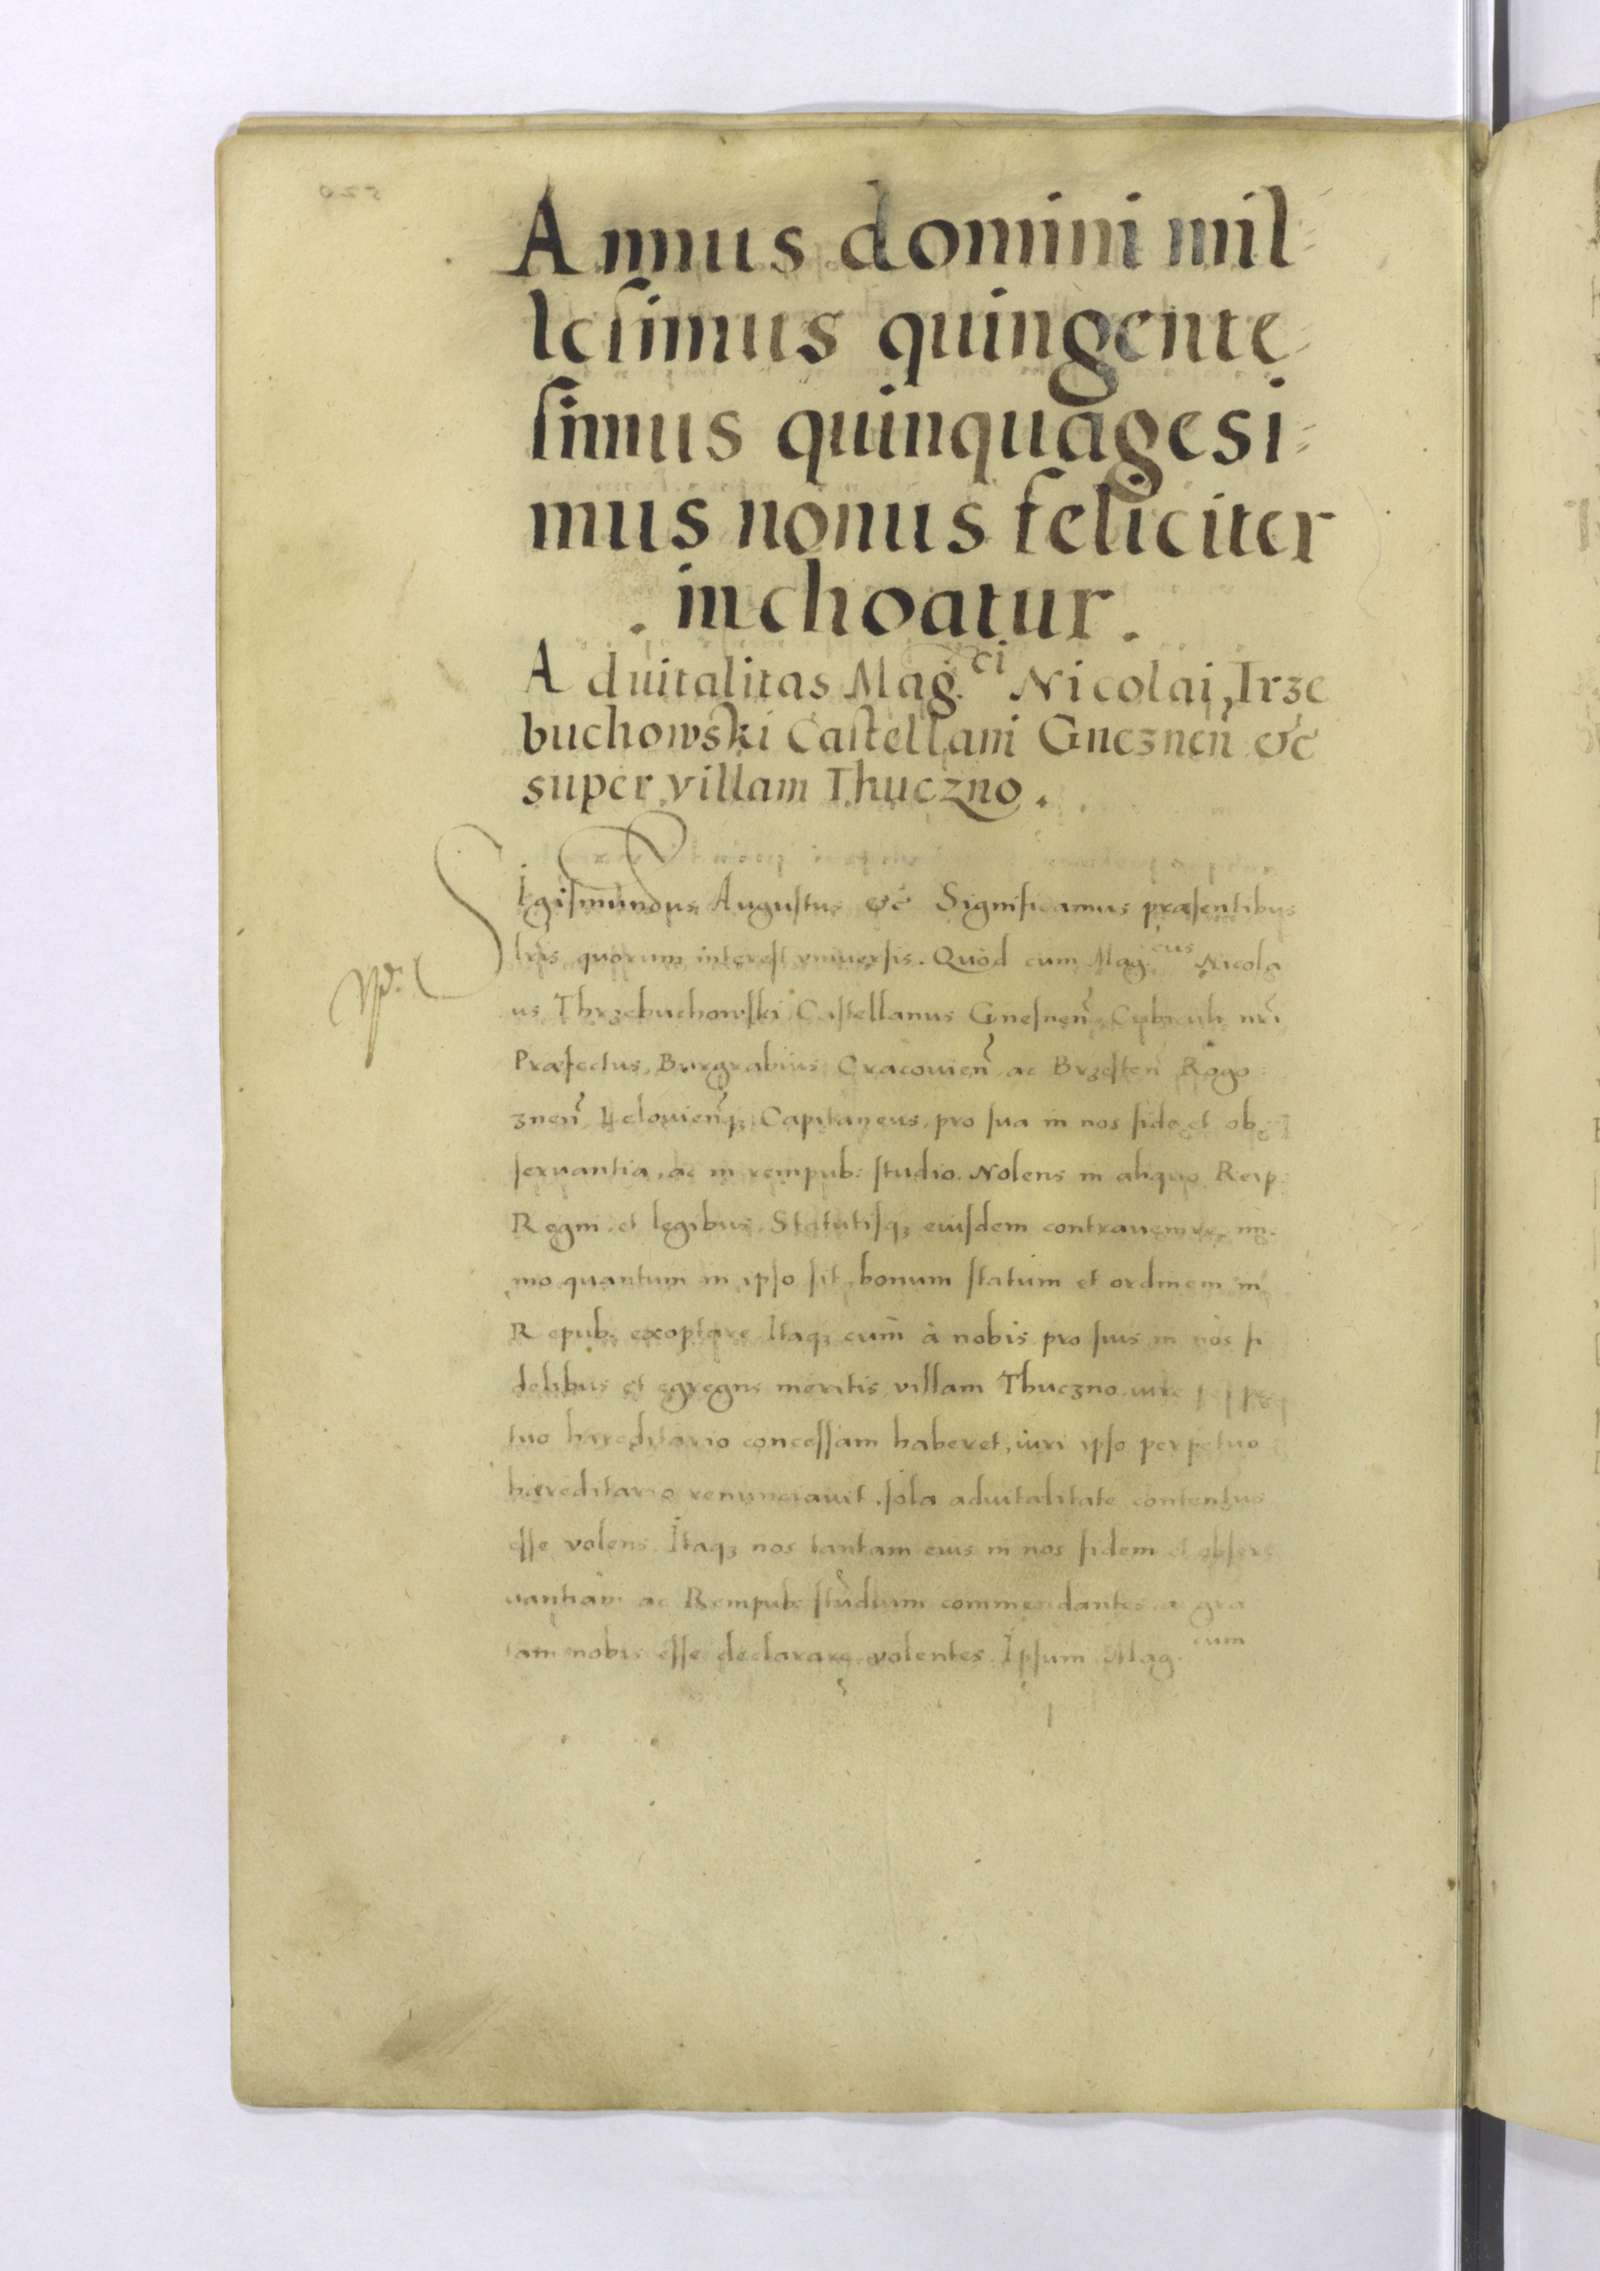 Annus domini mil=
lesimus quingente=
simus quinquagesi=
mus nonus feliciter
. inchoatur .
Aduitalitas Mag.ci Nicolai, Trze
buchowski Castellani Gneznen̄ &c̄
super villam Thuczno .
Sigismundus Augustus &c̄ Significamus præsentibus
lrīs quorum interest vniuersis. Quòd cum Mag.cus Nicola
us Thrzebuchowski Castellanus Gnesnen̄ Cubiculi nrī
Præfectus, Burgrabius Cracouien̄ ac Brzesten̄ Rogo
znen̄ Lelouienq̄ꝫ Capitaneus, pro sua in nos fide et ob
seruantia, ac in rempub: studio. Nolens in aliquo Reip:
Regni et legibus Statutisqꝫ eiusdem contrauenire, im
mo quantum in ipso sit, bonum statum et ordinem in
Repub: exoptare Itaqꝫ cum à nobis pro suis in nos fi
delibus et egregiis meritis villam Thuczno iure perpe
tuo hæreditario concessam haberet, iuri ipso perpetuo
hæreditario renunciauit, sola aduitalitate contentus
esse volens. Itaqꝫ nos tantam eius in nos fidem et obser
uantiam ac Rempub: studium commendantes, ac gra
tam nobis esse declarare volentes. Ipsum Mag.cum